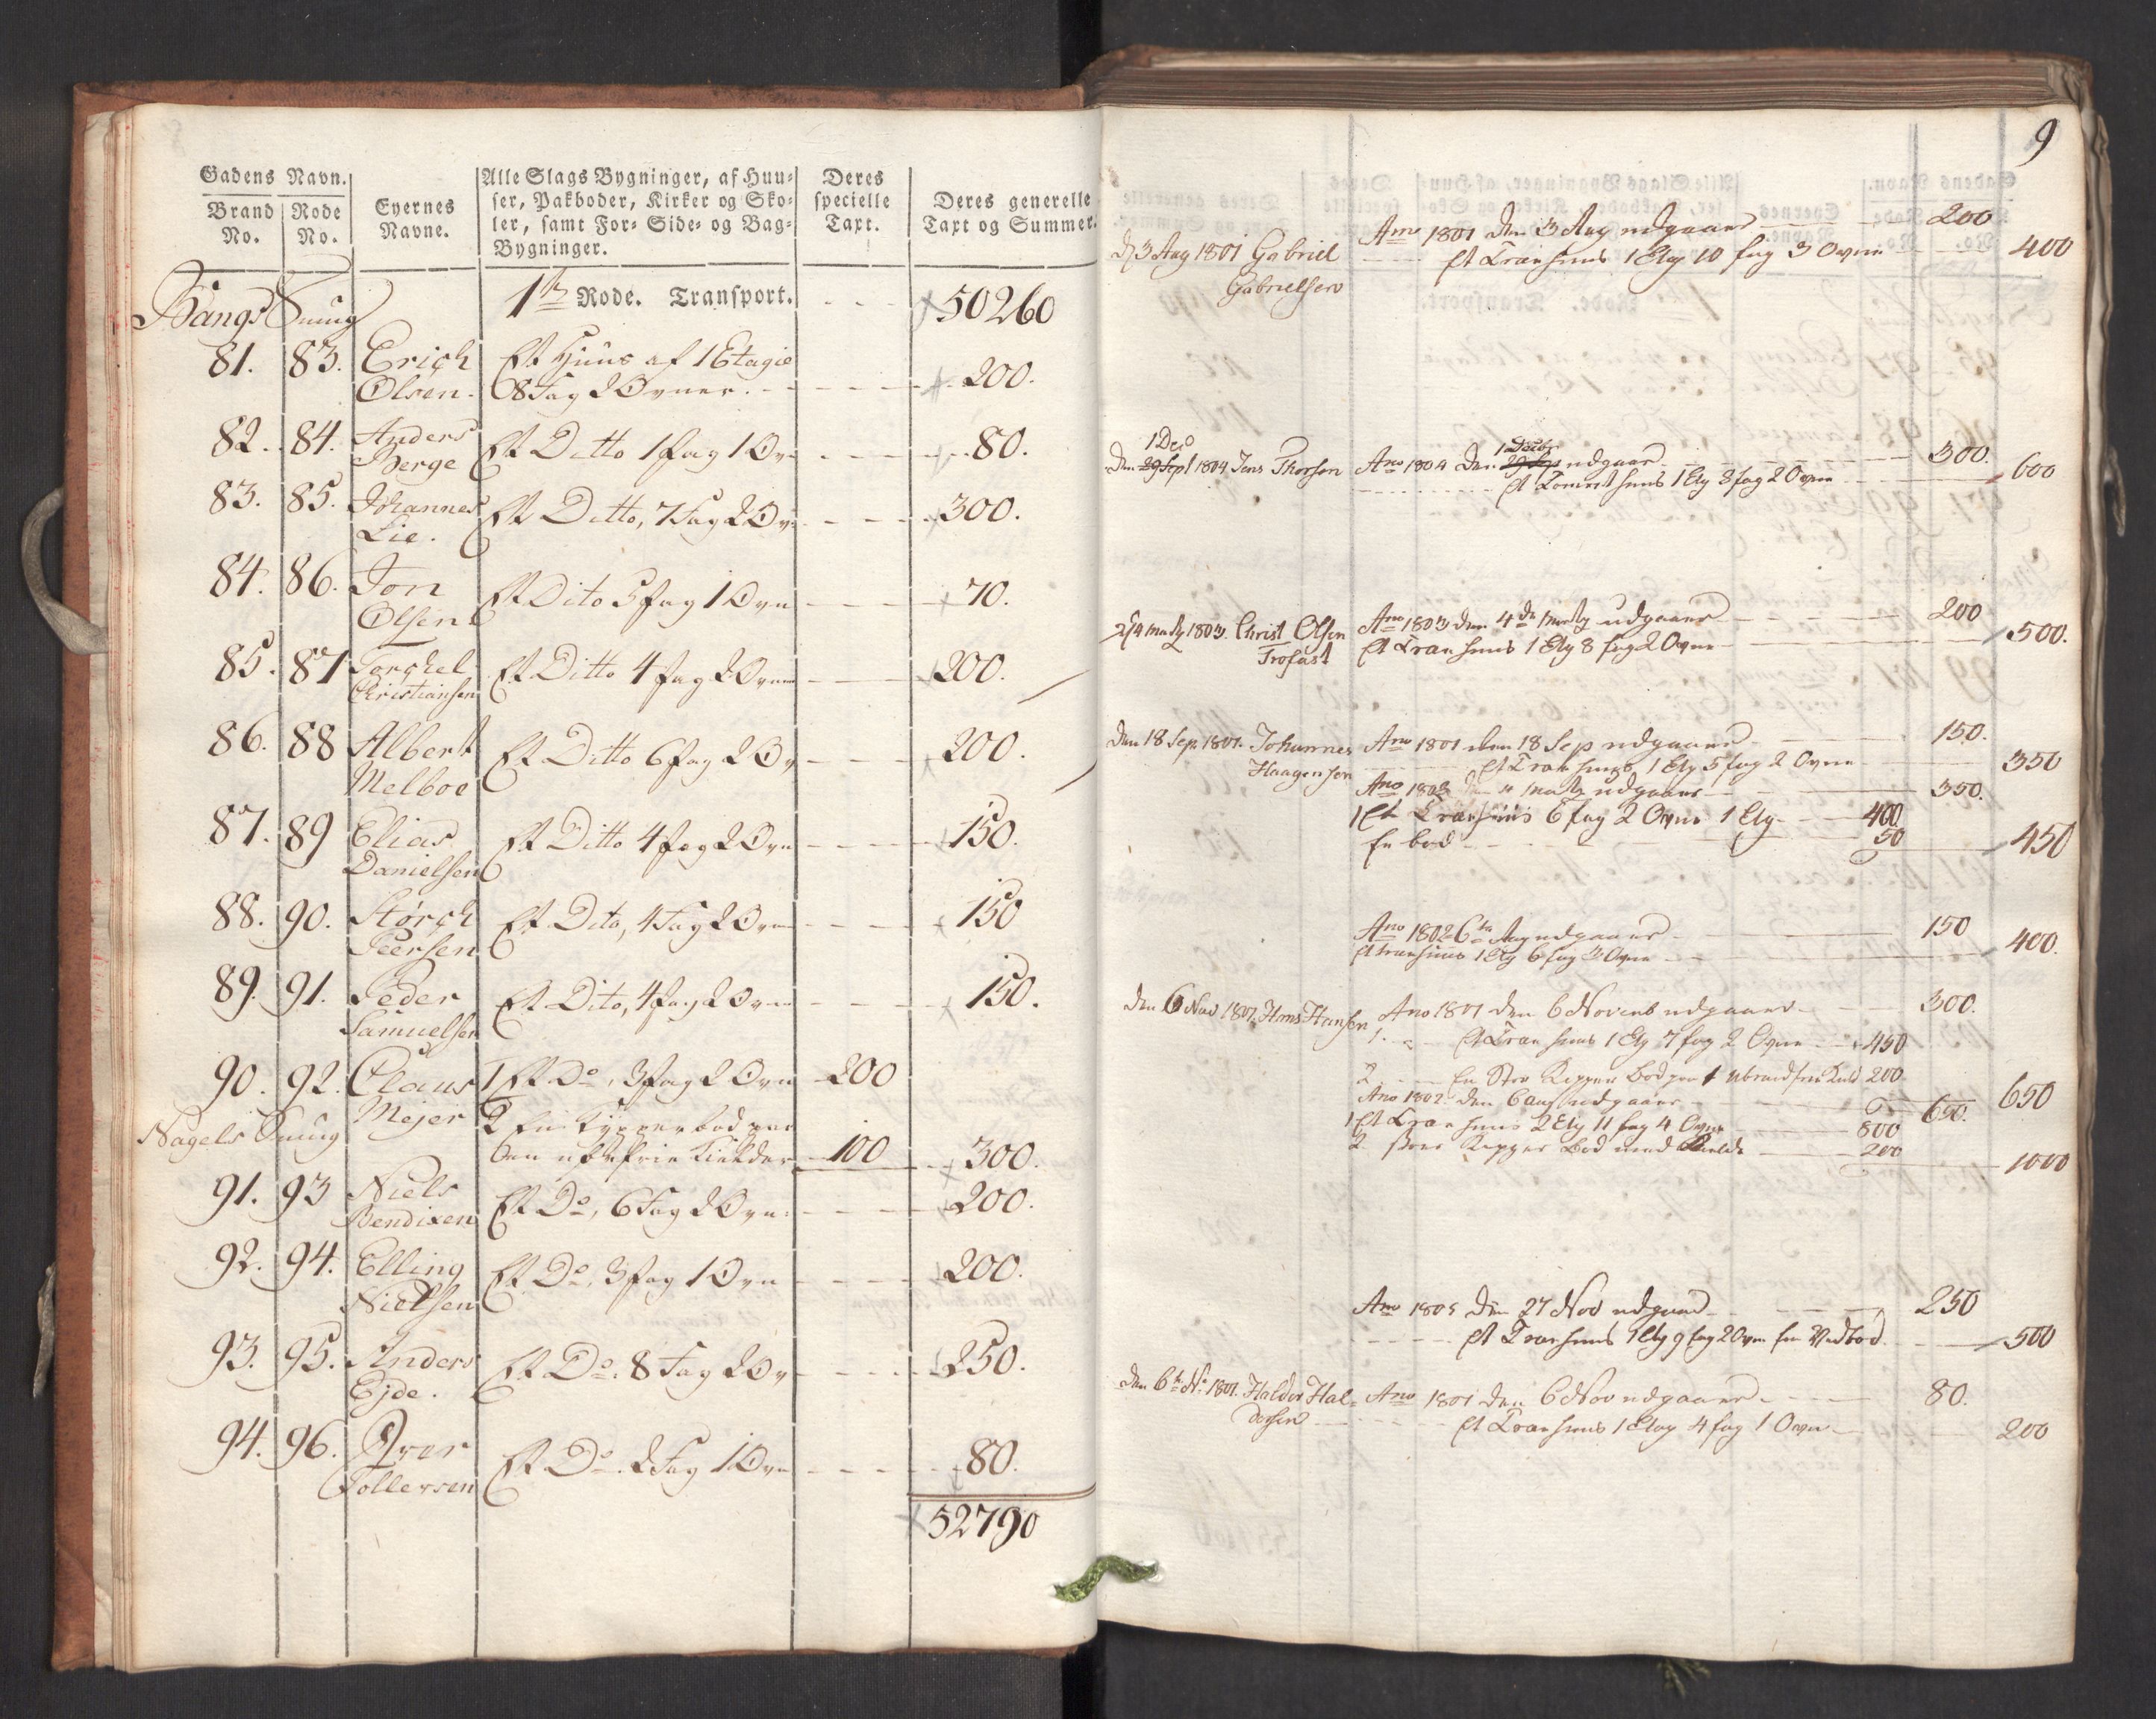 Gadens Navn.
Brand No.
Rode No.
Eyernes Navne.
Alle Slags Bygninger, af Huu-
ser, Pakboder, Kirker og Sko-
ler, samt For- Side- og Bag-
Bygninger.
Deres specielle Taxt.
Deres generelle Taxt og Summer.
Bangs Smug
1te Rode. Transport. 50260
81. 83. Erich Et Huus af 1 Etagie
Olsen. 8 Fag 2 Ovner. 200.
82. 84. Anders Et Ditto 1 fag 1 Ovn 80.
Berge
83. 85. Johannes Et Ditto, 7 Fag 2 Ov 300.
Lie.
84. 86. Jon Et Dito 5 fag 1 Ovn 70.
Olsen
85. 87 Torchel Et Ditto 4 fag 2 Ovne 200.
Christiansen
86. 88 Albert Et Ditto 6 fag 2 Ov 200.
Melboe
87. 89 Elias Et Ditto 4 fag 2 Ovn 150.
Danielsen
88. 90. Størch Et Dito, 4 Fag 2 Ovn 150
Peersen
89. 91. Peder Et Dito, 4 fag 2 Ovn 150.
Samuelsen
90. 92. Claus 1 Et Do, 3 fag 2 Ovn 200
Mejer 2 En Kypperbod
Nagels Smug
100 300.
91. 93 Niels Et Do, 6 Fag 2 Ovn. 200.
Bendixen
92. 94. Elling Et Do, 3 fag 1 Ovn 200.
Nielsen
93. 95. Anders Et Do. 8 Fag 2 Ov 250.
Ejde.
94. 96. Iver Et Do. 2 Fag 1 Ovn 80.
Tollersen
52790
9
d 3 Aug 1801 Gabriel Gabrielsen
Ano 1801 den 3 Aug udgaaer 200
Et Træhuus 1 Etg 10 fag 3 Ovne 400
1 Dec
Den 29 Sept 1804 Jens Thorsen
1 Decbr
Ano 1804 den 29 Sep udgaar 300.
Et Tomret huus 1 Etg 8 fag 2 Ovne 600
d 4 Martz 1803. Christ Olsen Trofast
Ano 1803 den 4de Martz udgaaer 200
Et Træhuus 1 Etg 8 fag 2 Ovne 500.
Den 18 Sep 1801. Johannes Haagensen
Ano 1801 den 18 Sep udgaaer 150.
Et Træhuus 1 Etg 5 fag 2 Ovne 350
Ano 1803 den 4 Martz udgaaer 350.
1 Et Træhuus 6 fag 2 Ovne 1 Etg 400
En bod 50 450
Ano 1802 6te Aug udgaaer 150
Et træhuus 1 Etg 6 fag 3 Ovne 400.
Den 6 Nov 1801. Hans Hansen
Ano 1801 den 6 Novemb udgaaer 300.
1. Et Træhuus 1 Etg 7 fag 2 Ovne 450
2 En Stor Kypper Bod 200 650
Ano 1802. den 6 aug udgaaer 650.
1 Et Træhuus 2 Etg 11 fag 4 Ovne 800
2 Kypper Bod med 200
1000
Ano 1805 den 27 Nov udgaaer 250
Et Træhuus 1 Etg 9 fag 2 Ovne en Vedbod 500
Den 6te N. 1801. Halder Hal-
dersen
Ano 1801 den 6 Nov udgaaer 80.
Et Træhuus 1 Etag 4 fag 1 Ovn 200